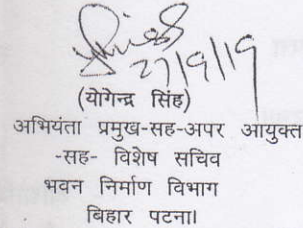 27/9/19
(योगेन्द्र सिंह)
अभियंता प्रमुख-सह-अपर आयुक्त
-सह- विशेष सचिव
भवन निर्माण विभाग
बिहार पटना।